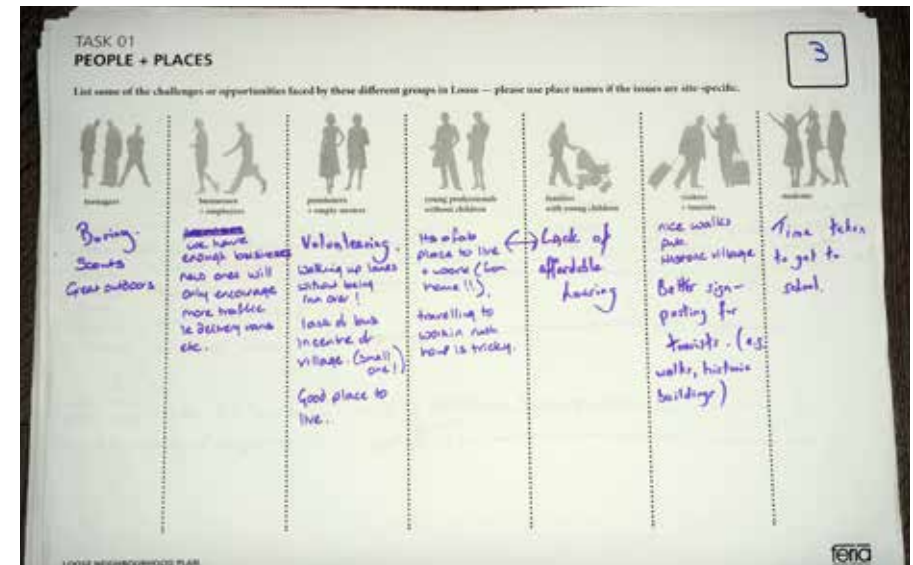 TASK 01
PEOPLE + PLACES
3
List some of the challenges or opportunities faced by these different groups in Loose — please use place names if the issues are site-specific.
teenagers
Boring.
Scouts
Great outdoors
businesses
+ employees
we have
enough businesses
new ones will
only encourage
more traffic
ie delivery vans
etc.
pensioners
+ empty nesters
Volunteering.
Walking up lanes
without being
run over!
lack of bus
in centre of
village. (small
one!)
Good place to
live.
young professionals
without children
Its a fab
place to live
+ work (from
home!!).
travelling to
work in rush
hour is tricky.
families
with young children
Lack of
affordable
housing
visitors
+ tourists
nice walks
pub
historic village
Better sign-
posting for
tourists. (e.g.
walks, historic
buildings)
students
Time taken
to get to
school.
LOOSE NEIGHBOURHOOD PLAN
feria